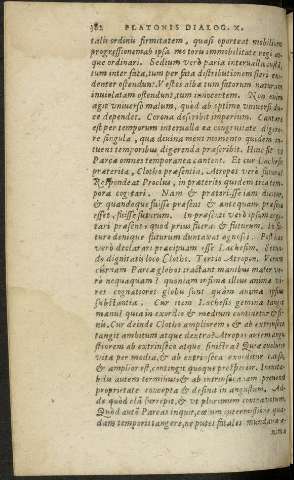 382 PLATONIS DIALOG. X.
talis ordinis firmitatem, quasi oporteat mobilium
progressionem ab ipsa motoru immobilitate regi at-
que ordinari. Sedium verò paria interualla
tum inter fata, tum per fata distributionem fieri
denter ostendunt. Vestes albæ tum fatorum naturam
inuiolatam ostendunt, tum innocentem. Non enim
agit vniuerso malum, quòd ab optimo vniuersi du-
ce dependet. Corona describit imperium. Cantare
est per temporum interualla ea congruitate digere-
re singula, qua diuina mens momento quodam in-
tuenti temporibus digerenda præscribit. Hinc sit vt
Parcæ omnes temporanea cantent. Et cur Lachesis
præterita, Clotho præsentia, Atropos verò futura?
Respondeat Proclus, in præteritis quidem
pora cogitari. Nam & præteriisse iam
& quandoque fuisse præsens & antequam præsens
esset, fuisse futurum. In præsenti verò ipsum
tari præsens quod prius fuerit & futurum. In
turo denique futurum duntaxat agnosci.
verò declarari præcipuam esse Lachesim. Secun-
do dignitatis loco Clotho. Tertio Atropon. Verum
cur nam Parcæ globos tractant manibus
ro nequaquam? quoniam
res cognatione globi sunt quàm anima ipsius
substantia. Cur item Lachesis gemina tangit
manu? quia in exordio & medium continetur & fi-
nis. Cur deinde Clotho ampliorem, & ab extrinseco
tangit ambitum atque dextra? Atropos autem angu-
stiorem ab intrinseco atque sinistra? Quia euolutio
vitæ per media, & ab extrinseca exoritur causa,
& amplior est, contingit quoque prosperior.
bilis autem terminus & ab intrinseca iam
proprietate concepta & desinit in angustum. Ad-
de quòd clam surrepit, & vt plurimum contristatur.
Quòd autem Parcas inquit, cœlum intercessione qua-
dam temporis tangere, ne putes fatales mundanæ a-
nimæ